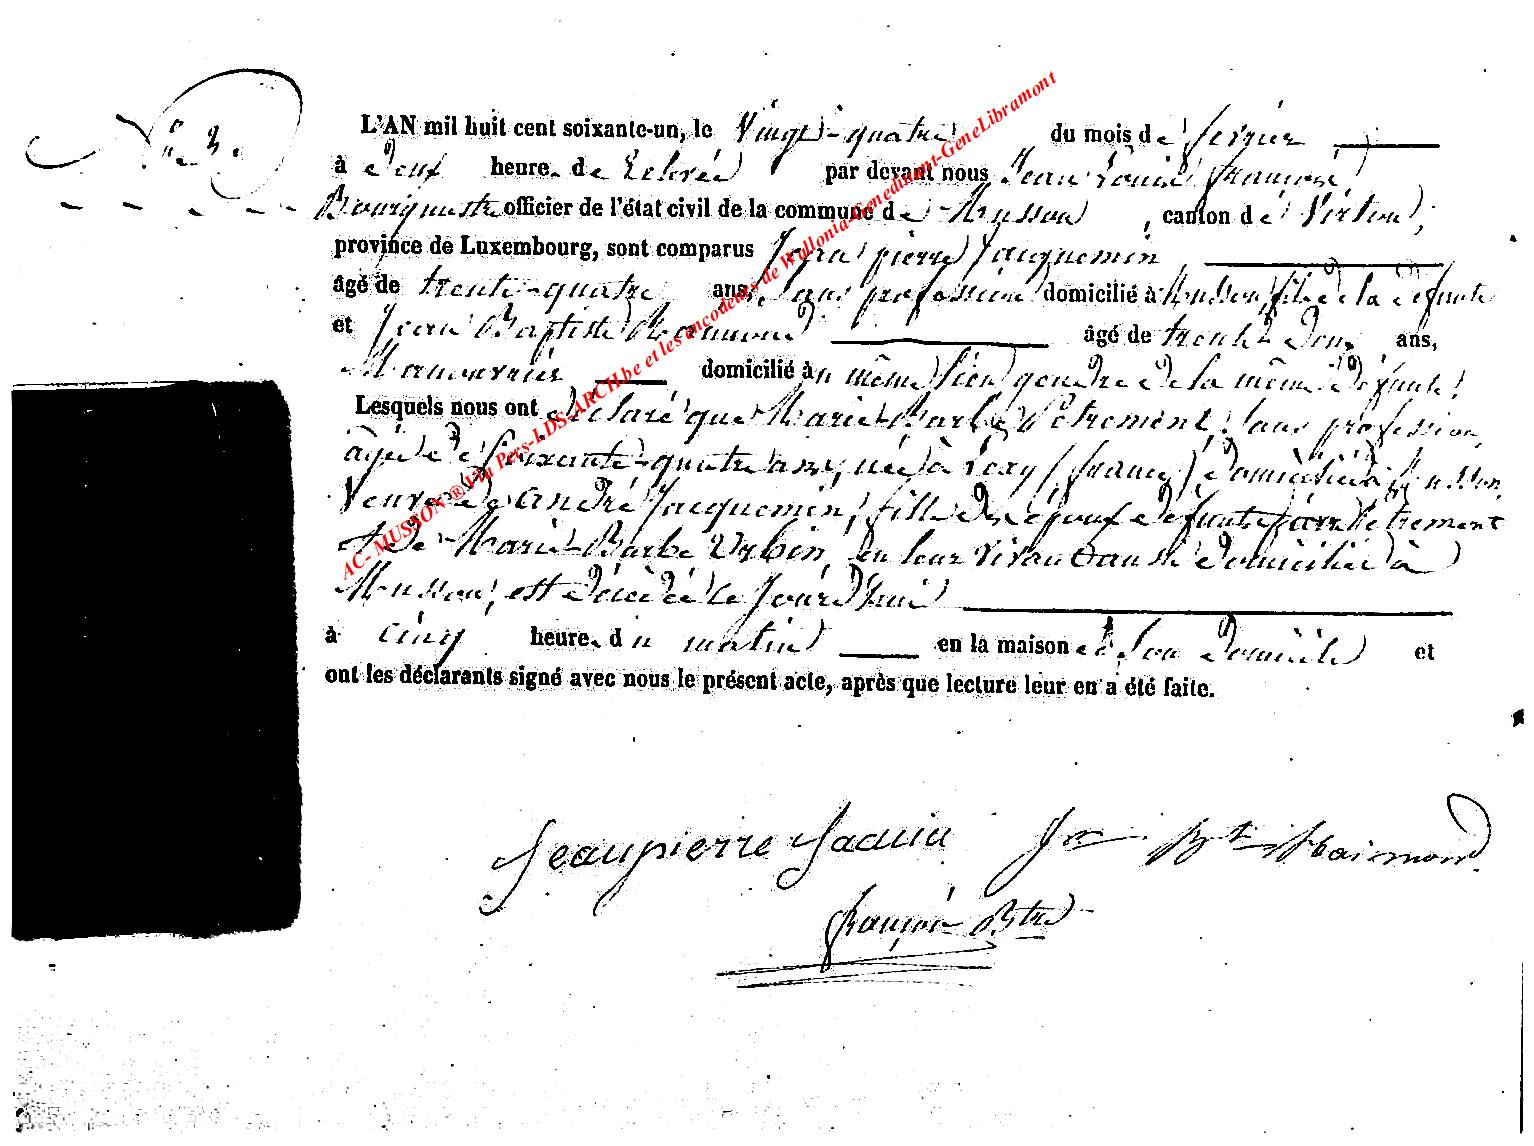 N° 3.
L'AN mil huit cent soixante-un, le vingt-quatre du mois de février
à deux heure. de relevée par devant nous Jean Louis François,
Bourgmestre officier de l'état civil de la commune de Musson, canton de Virton,
province de Luxembourg, sont comparus Jean pierre Jacquemin
âgé de trente-quatre ans, sans profession domicilié à Musson, fils de la défunte
et Jean Baptiste âgé de trente deux ans,
Manouvrier domicilié au même lieu gendre de la même défunte.
Lesquels nous ont déclaré que Marie-Barbe Pétrement, sans profession,
âgée de soixante-quatre ans, née à Lexy (France), domiciliée à Musson,
veuve de André Jacquemin, fille des époux défunts Pétrement
et de Marie-Barbe Urbin, en leur vivant aussi domiciliés à
Musson, est décédée ce jourd'hui
à cinq heure. du matin en la maison de son domicile et
ont les déclarants signé avec nous le présent acte, après que lecture leur en a été faite.
Jeanpierre Jn Bte
François Btre
AC- MUSSON ® Via Pers-LDS-ARCH.be et les encodeurs de Wallonia-Genedinant-GeneLibramont